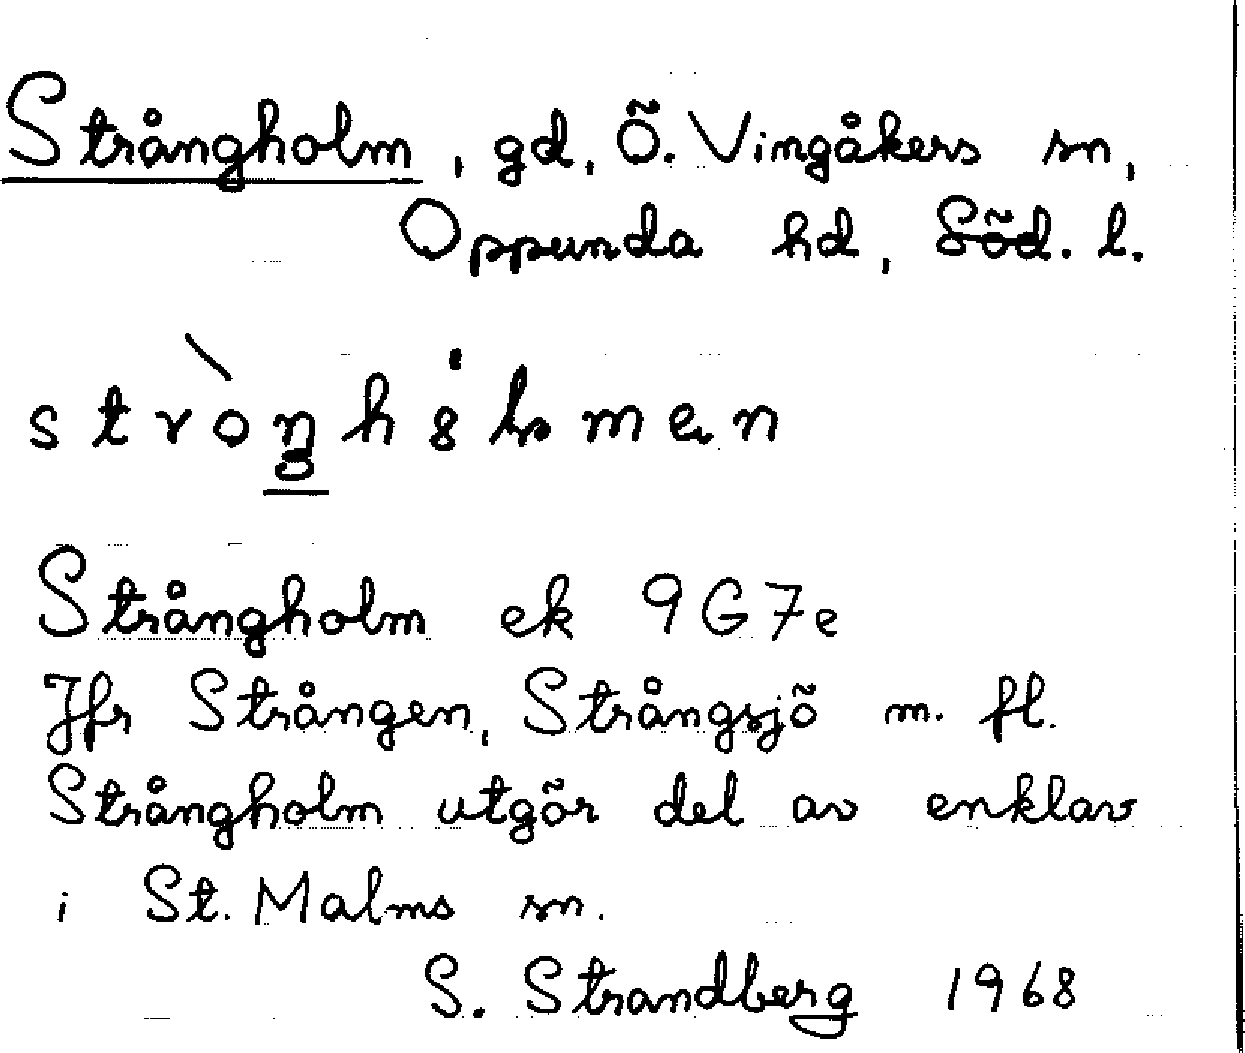 Strångholm, gd, Õ. Vingåkers sn,
Oppunda hd, Sõd. l.
Strångholm ek 9G7e
Jfr Strången, Strångsjõ m. fl.
Strångholm utgõr del av enklav
i St. Malms sn.
S. Strandberg 1968